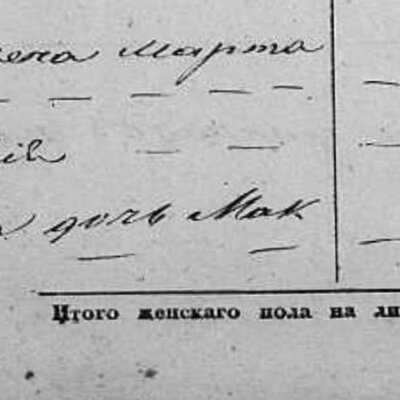 жена Марта
дочь Мак
Итого женскаго пола на ли